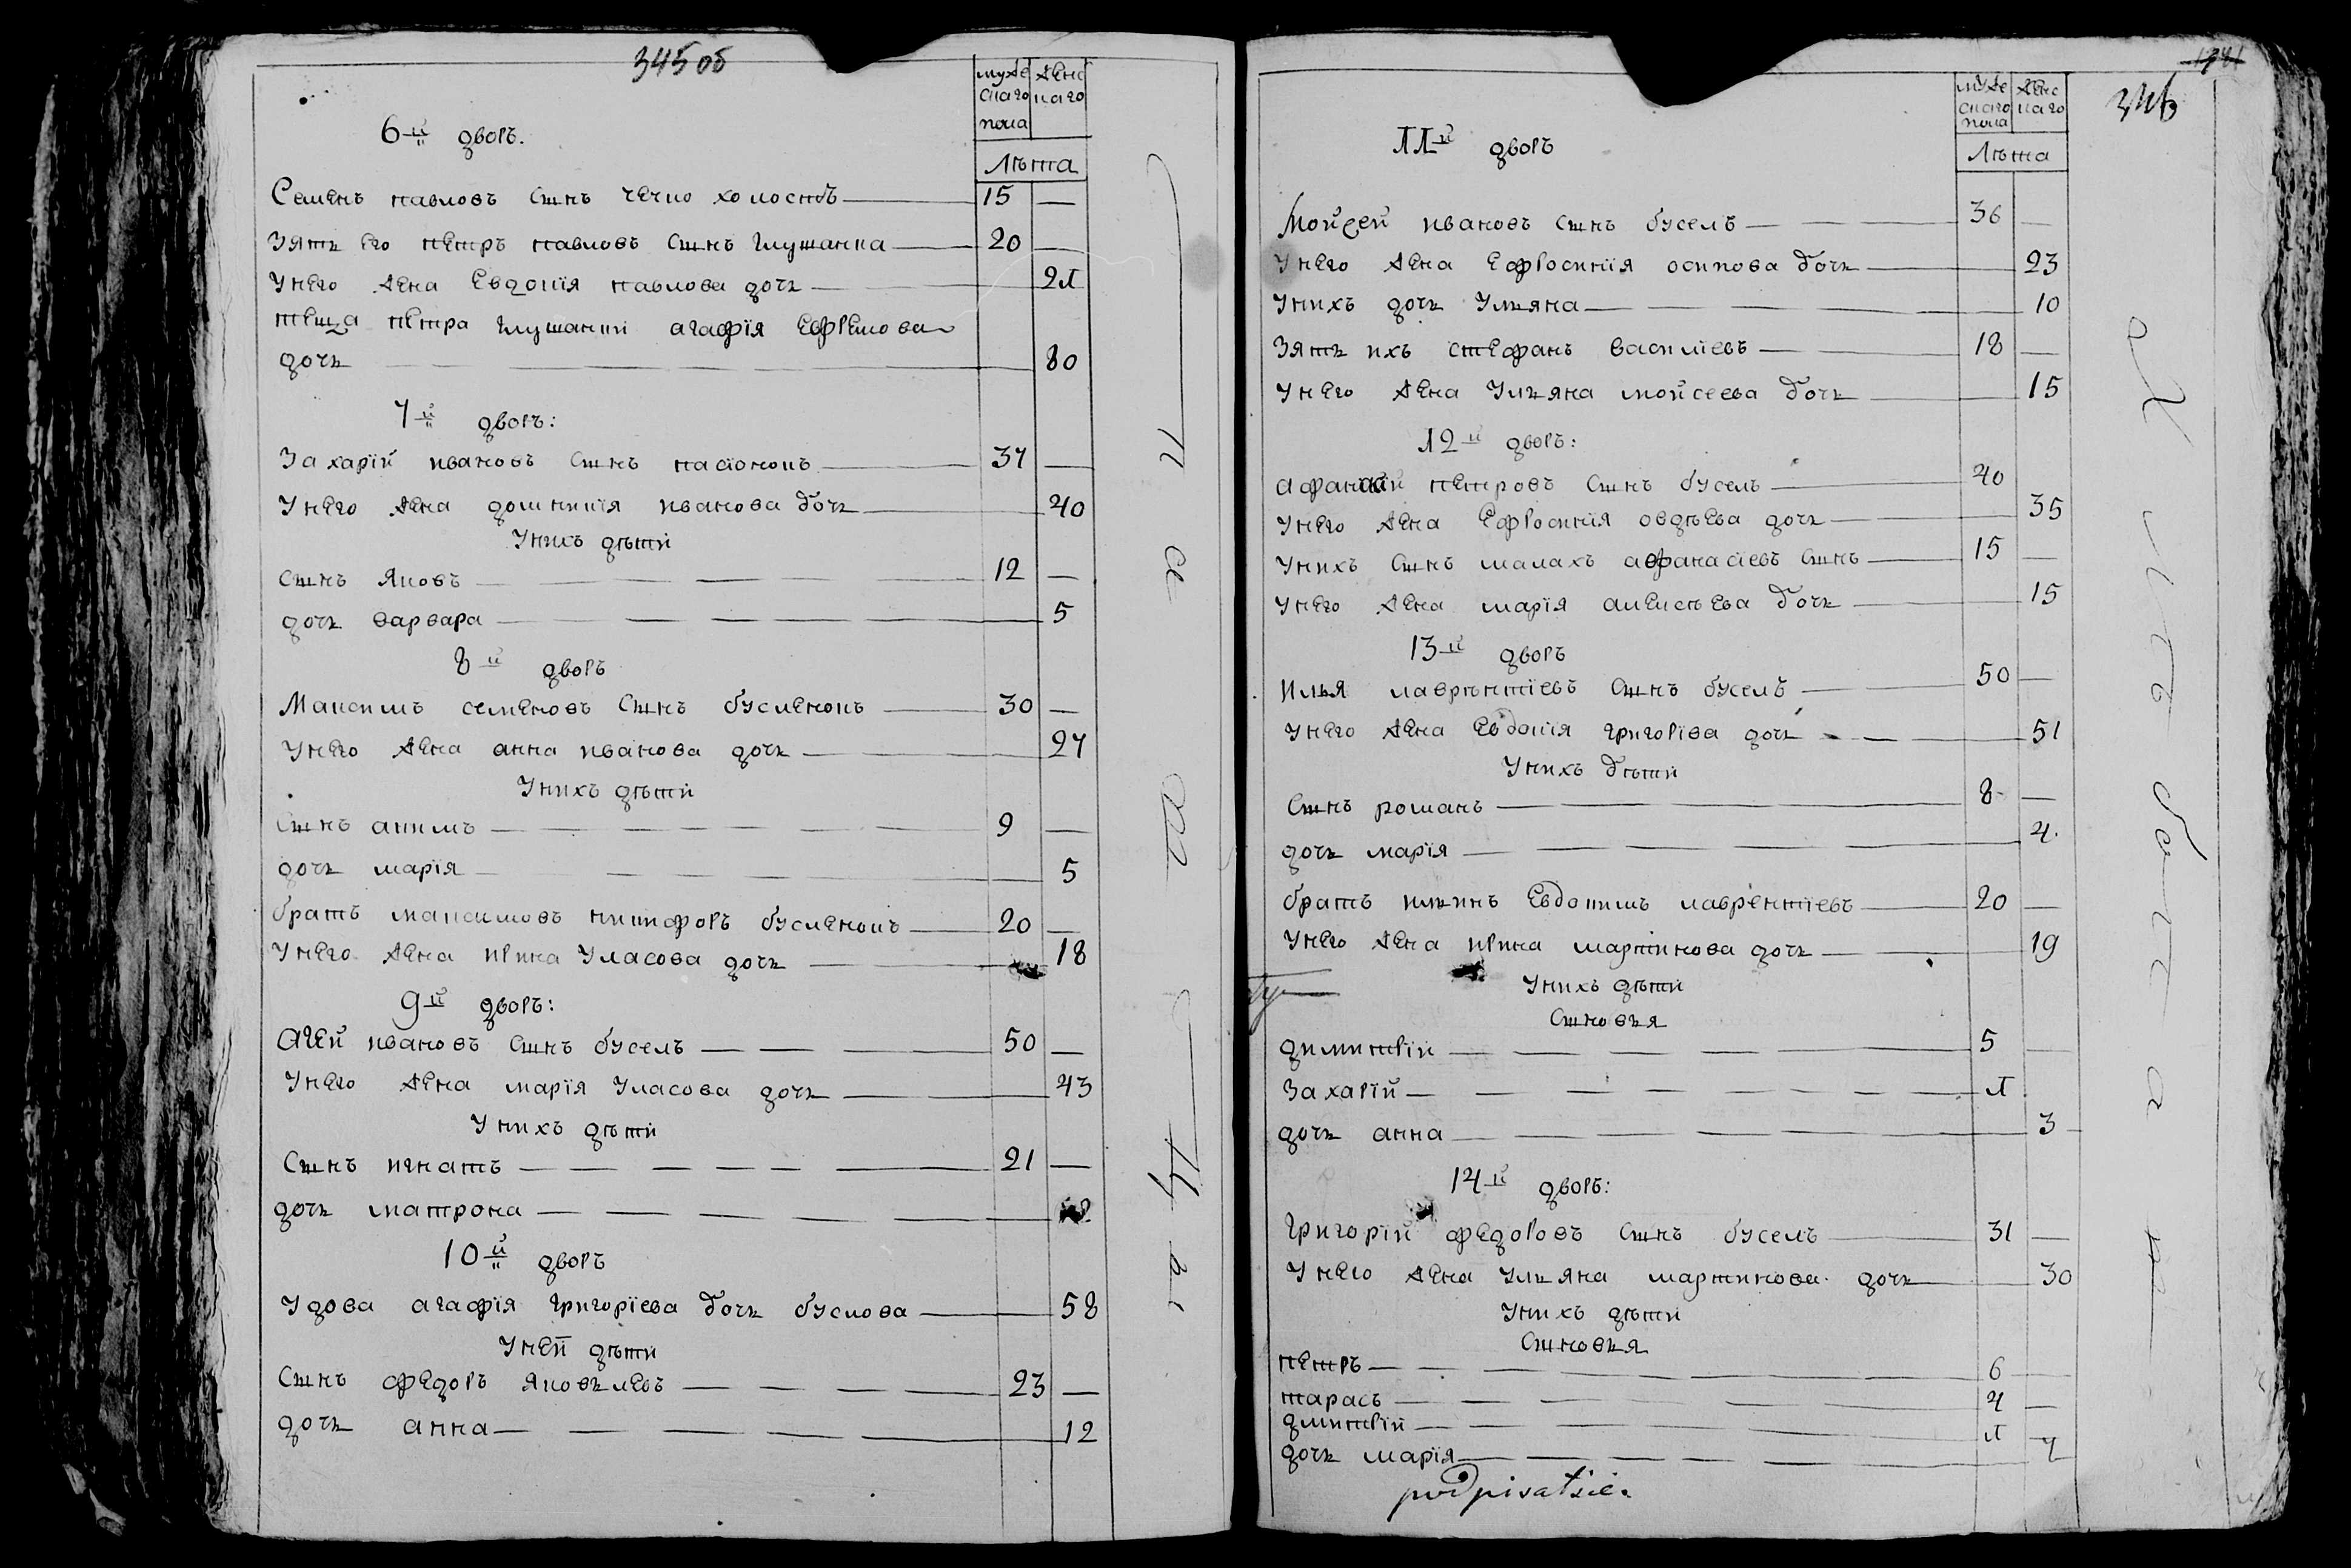 345 об
муже
скаго
пола
женс
каго
Лѣта
6й дворъ.
Семенъ павловъ сынъ чечко холостъ 15 —
Зять его петръ павловъ сынъ глушанка 20 —
Унего жена Евдокія павлова дочь 21
теща петра глушанки агафія Ефремова
дочь 80
7й дворъ:
Захарій ивановъ сынъ касіонокъ 37 —
Унего жена домникія иванова дочь 40
Унихъ дѣти
сынъ яковъ 12 —
дочь варвара 5
8й дворъ
Максимъ семеновъ сынъ бусленокъ 30 —
Унего жена анна иванова дочь 27
Унихъ дѣти
сынъ акимъ 9 —
дочь марія 5
братъ максимовъ никифоръ бусленокъ 20 —
Унего жена ирина Уласова дочь 18
9й дворъ:
Агей ивановъ сынъ буселъ 50 —
Унего жена марія Уласова дочь 43
Унихъ дѣти
Сынъ игнатъ 21 —
дочь матрона
10й дворъ
Удова агафія григоріева дочь буслова 58
Уней дѣти
Сынъ федоръ яковьлевъ 23 —
дочь анна 12
346
муже
скаго
пола
женс
каго
Лѣта
11й дворъ
Мойсей ивановъ сынъ буселъ 36 —
Унего жена Ефросинія осипова дочь 23
Унихъ дочь Ульяна 10
Зять ихъ стефанъ василіевъ 18 —
Унего жена Ульяна мойсеева дочь 15
12й дворъ:
афанасій петровъ сынъ буселъ 40
Унего жена Ефросинія овдѣева дочь 35
Унихъ сынъ малахъ афанасіевъ сынъ 15 —
Унего жена марія алексѣева дочь 15
13й дворъ
Илья лаврѣнтіевъ сынъ буселъ 50 —
Унего жена Евдокія григоріва дочь 51
Унихъ дѣти
Сынъ романъ 8 —
дочь марія 4.
братъ ильинъ Евдокимъ лаврентіевъ 20 —
Унего жена ирина мартинова дочь 19
Унихъ дѣти
Сыновья
димитрій 5 —
Захарій 1
дочь анна 3
14й дворъ:
Григорій федоровъ сынъ буселъ 31 —
Унего жена Ульяна мартинова дочь 30
Унихъ дѣти
Сыновья
петръ 6 —
тарасъ 4 —
дмитрій 1 —
дочь марія 7